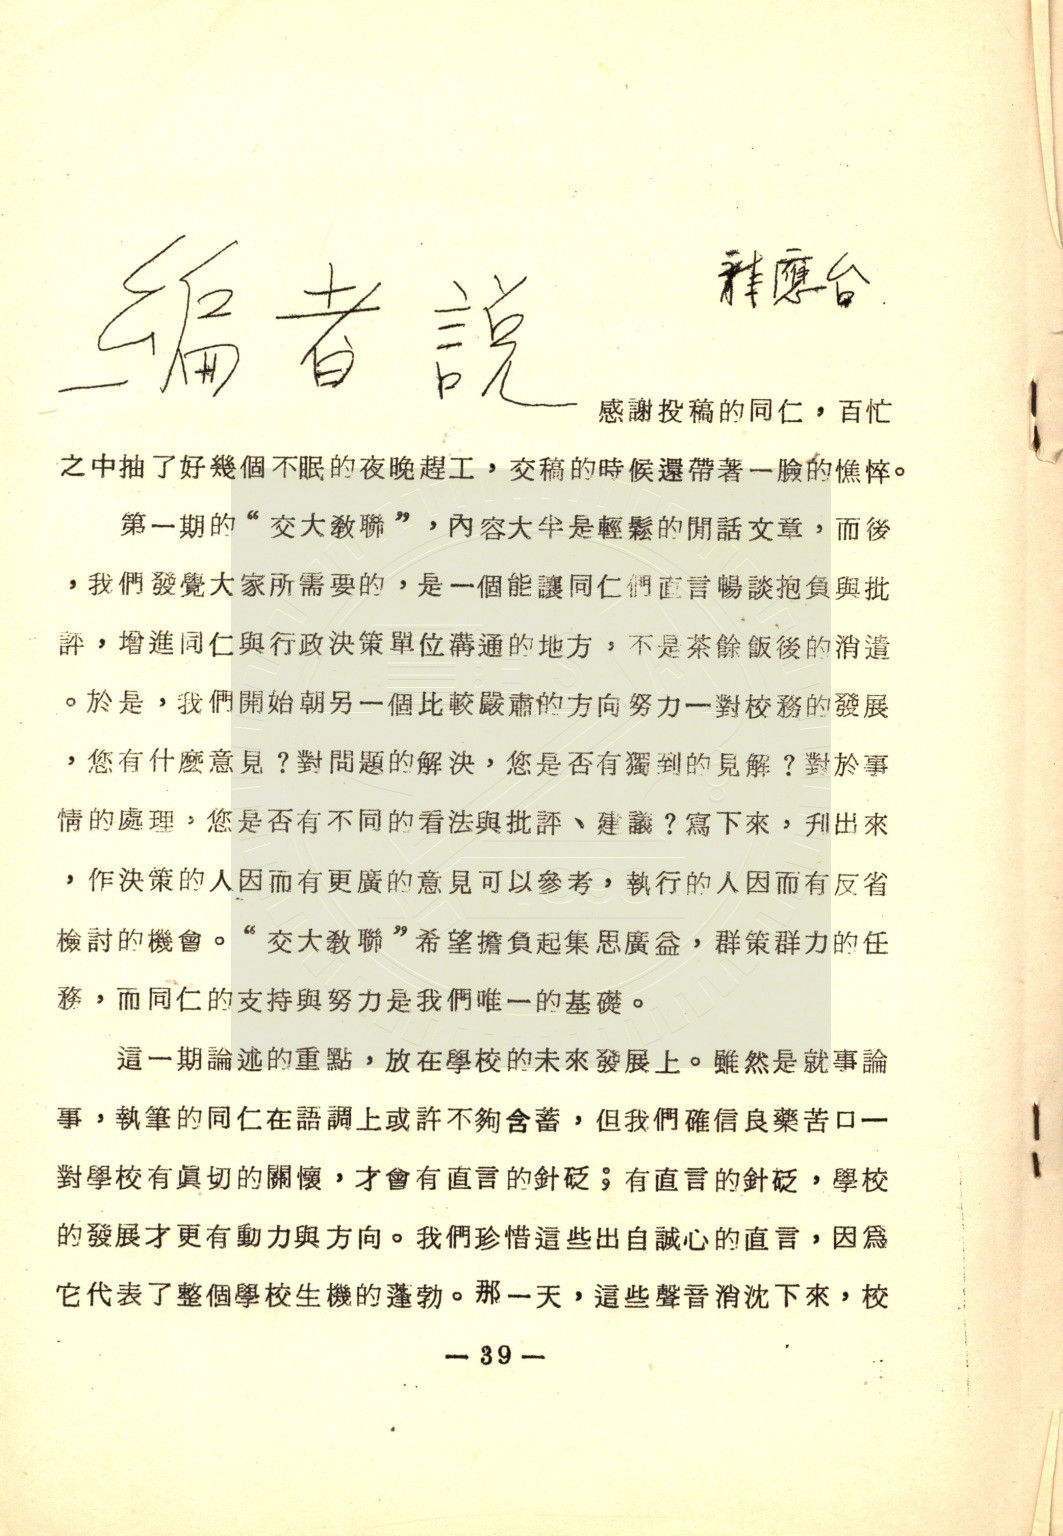 編者說
龍應台
感謝投稿的同仁，百忙
之中抽了好幾個不眠的夜晚趕工，交稿的時候還帶著一臉的憔悴。
第一期的“交大教聯”，內容大半是輕鬆的閒話文章，而後
，我們發覺大家所需要的，是一個能讓同仁們直言暢談抱負與批
評，增進同仁與行政決策單位溝通的地方，不是茶餘飯後的消遣
。於是，我們開始朝另一個比較嚴肅的方向努力—對校務的發展
，您有什麼意見？對問題的解決，您是否有獨到的見解？對於事
情的處理，您是否有不同的看法與批評、建議？寫下來，刋出來
，作決策的人因而有更廣的意見可以參考，執行的人因而有反省
檢討的機會。“交大教聯”希望擔負起集思廣益，群策群力的任
務，而同仁的支持與努力是我們唯一的基礎。
這一期論述的重點，放在學校的未來發展上。雖然是就事論
事，執筆的同仁在語調上或許不夠含蓄，但我們確信良藥苦口—
對學校有眞切的關懷，才會有直言的針砭；有直言的針砭，學校
的發展才更有動力與方向。我們珍惜這些出自誠心的直言，因爲
它代表了整個學校生機的蓬勃。那一天，這些聲音消沈下來，校
— 39 —